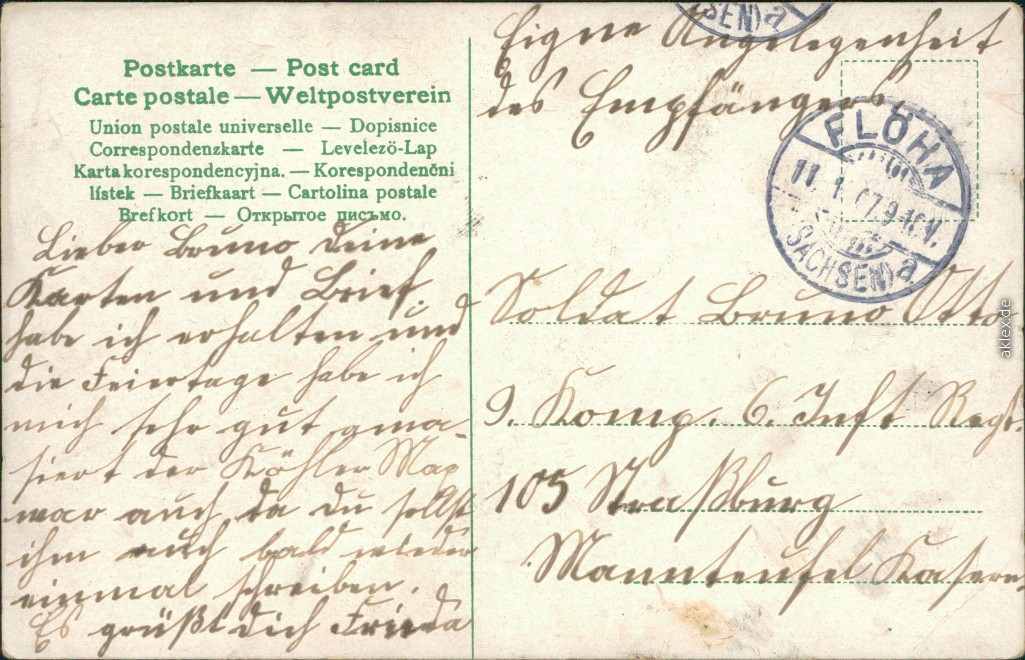 Postkarte — Post card
Carte postale — Weltpostverein
Union postale universelle — Dopisnice
Correspondenzkarte — Levelezö-Lap
Karta korespondencyjna. — Korespondenční
lístek — Briefkaart — Cartolina postale
Brefkort — Открытое письмо.
Lieber Bruno deine
Karten und Brief.
habe ich erhalten und
die Feiertage habe ich
mich sehr gut ama-
siert der Köhler Max
war auch da du sollst
ihm auch bald wieder
einmal schreiben.
Es grüßt dich Frieda
(SEN) a
Eigne Angelegenheit
des Empfängers.
FLÖHA
11. 1. 07. 9-10N.
(SACHSEN) a
Soldat Bruno Otto
9. Komp. 6. Inft Regt.
105 Straßburg
Mannteufel Kaserne
aklex.de